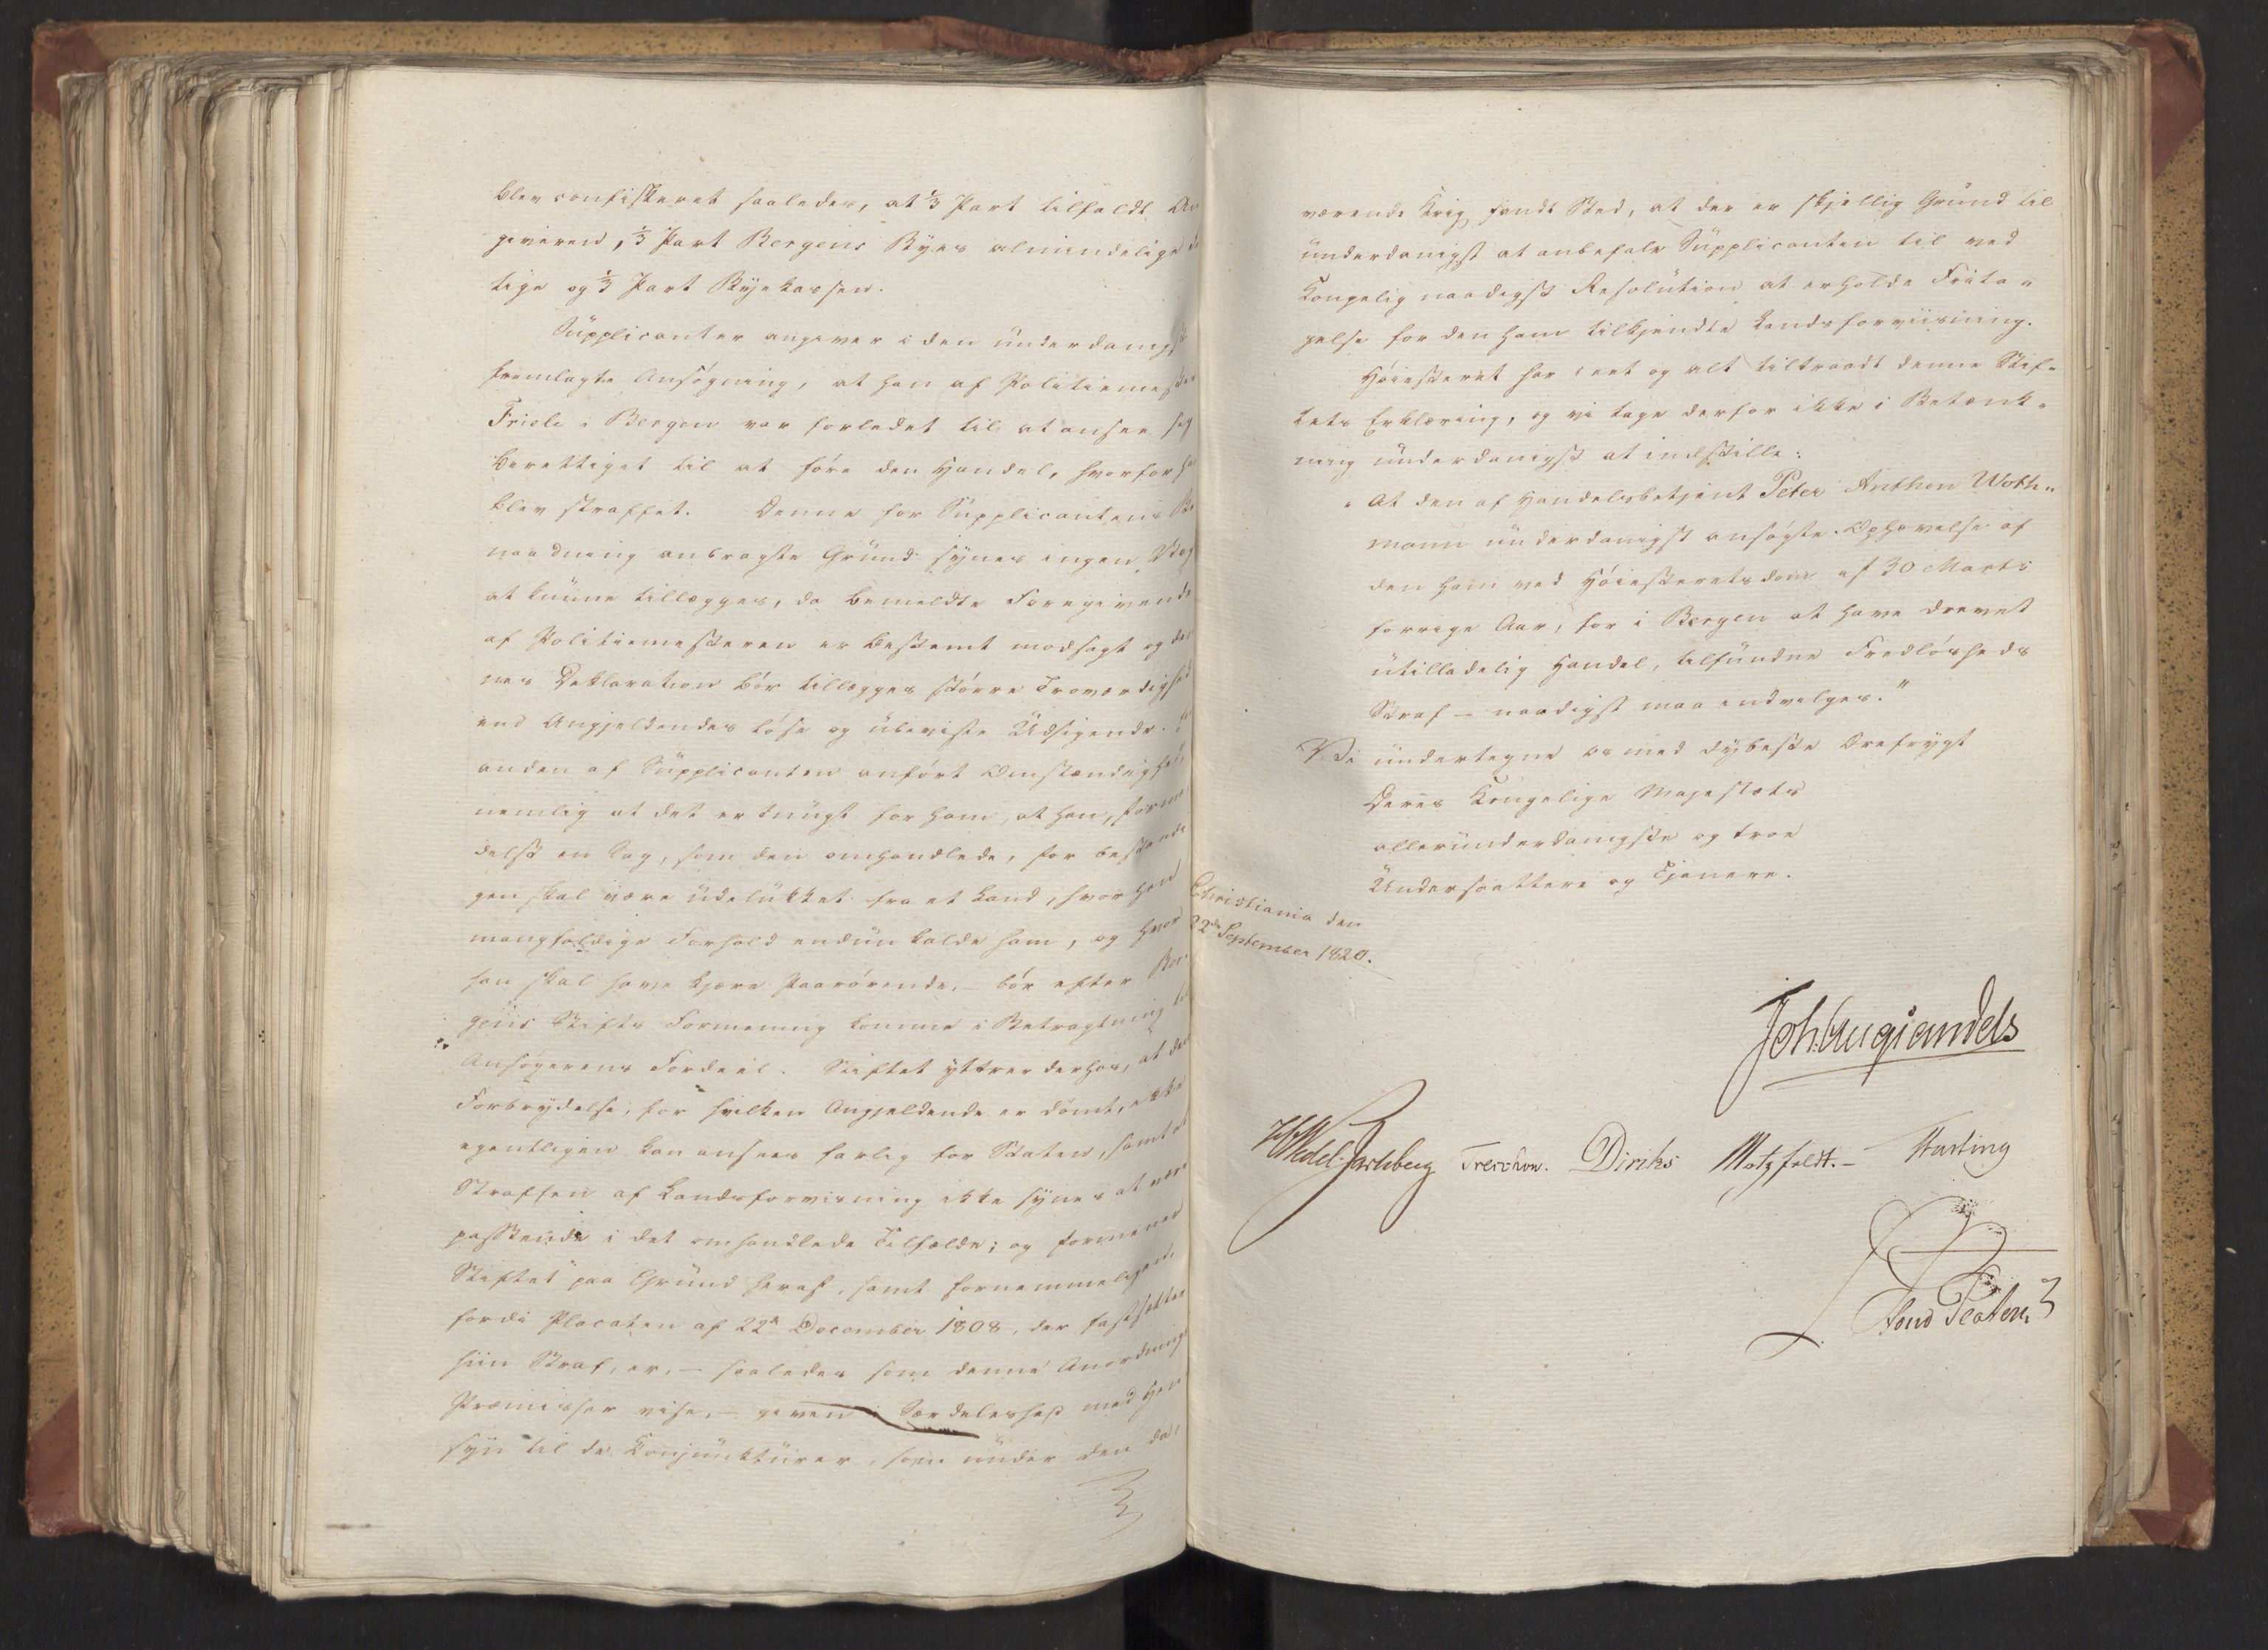 blev confiskeret saaledes, at 1/3 Part tilfaldt An
giveren, 1/3 Part Bergens Byes almindelige
tige og 1/3 Part Byekassen.
Supplicanten angiver i den underdanigst
fremlagte Ansøgning, at han af Politiemester
Friele i Bergen var forledet til at ansee sig
berettiget til at före den Handel, hvorfor han
blev straffet. Denne for Supplicantens Be
naadning anbragte Grund synes ingen Vægt
at kunne tillægges, da bemeldte Foregivende
af Politiemesteren er bestemt modsagt og den
nes Deklaration bör tillægges större Troværdighed
end Angjeldendes löse og ubeviste Udsigende.
anden af Supplicanten anfört Omstændighed,
nemlig at det er tungt for ham, at han, forme
delst en Sag, som den omhandlede, for bestandi
gen skal være udelukket fra et Land, hvorhen
mangfoldige Forhold endnu kalde ham, og hvor
han skal have kjære Paarörende, – bör efter Ber-
gens Stifts Formening komme i Betragtning til
Ansögerens Fordeel. Stiftet yttrer derhos, at den
Forbrydelse, for hvilken Angjeldende er dömt, ikke
egentligen kan ansees farlig for Staten, samt at
Straffen af Landsforvisning ikke synes at være
passende i det omhandlede Tilfælde; og formener
Stiftet paa Grund heraf, samt fornemmeligen
fordi Placaten af 22de December 1808, der fastsætter
hiin Straf, er, – saaledes som denne Anordnings
Præmisser vise, – given i Særdeleshed med Hen
syn til de Konjunkturer, som under den da
værende Krig fandt Sted, at der er skjellig Grund til
underdanigst at anbefale Supplicanten til ved
Kongelig naadigst Resolution at erholde Frita-
gelse for den ham tilkjendte Landsforviisning.
Höiesteret har eet og alt tiltraadt denne Stif-
tets Erklæring, og vi tage derfor ikke i Betænk-
ning underdanigst at indstille:
"At den af Handelsbetjent Peter Anthon Woth-
mann underdanigst ansögte Ophævelse af
den ham ved Höiesteretsdom af 30 Marts
forrige Aar, for i Bergen at have drevet
utilladelig Handel, tilfundne Fredlösheds
Straf – naadigst maa indvilges."
Vi undertegne os med dybeste Ærefrygt
Deres Kongelige Majestæts
allerunderdanigste og troe
Undersaattere og Tjenere.
Christiania den
22de September 1820.
Joh. Aug. Sandels
HWedel-Jarlsberg Treschow. Diriks Motzfeldt. – Fasting